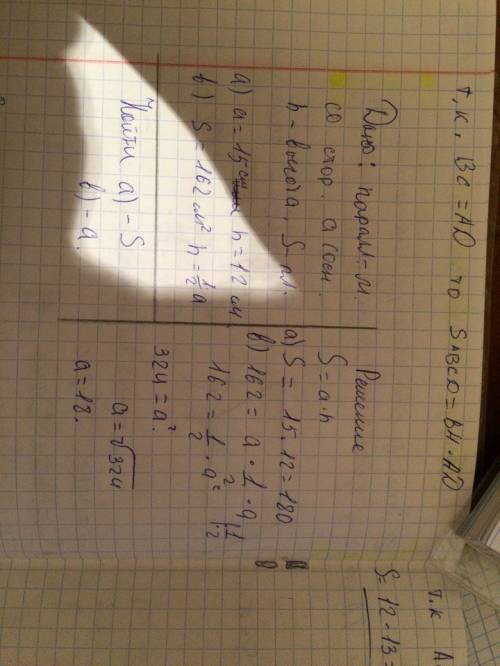 т.к. BC = AD то SABCD = BH·AD
Дано: паралл-м
со стор. a осн.
h = высота, S пл.
а) a = 15 см h = 12 см.
в) S = 162 см² h = 1/2 a
Найти а) - S
в) - a.
Решение
S = a·h
а) S = 15·12 = 180
в) 162 = a · 1/2 · a
162 = 1/2 · a² | ·2
324 = a²
a = √324
a = 18.
т.к A
S = 12 · 13 =